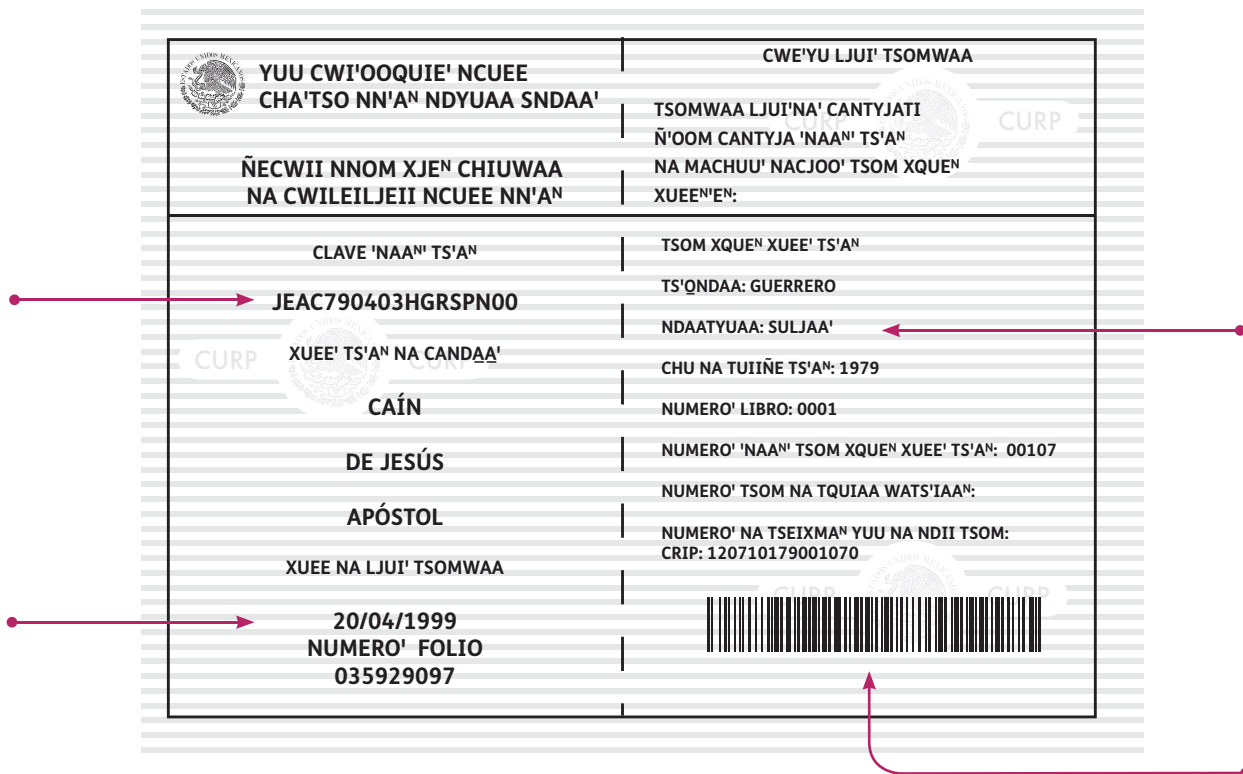 YUU CWI'OOQUIE' NCUEE
CHA'TSO NN'Aᴺ NDYUAA SNDAA'
ÑECWII NNOM XJEᴺ CHIUWAA
NA CWILEILJEII NCUEE NN'Aᴺ
CWE'YU LJUI' TSOMWAA
TSOMWAA LJUI'NA' CANTYJATI
Ñ'OOM CANTYJA 'NAAᴺ' TS'Aᴺ
NA MACHUU' NACJOO' TSOM XQUEᴺ
XUEEᴺ'Eᴺ:
CURP CURP
CLAVE 'NAAᴺ' TS'Aᴺ
JEAC790403HGRSPN00
XUEE' TS'Aᴺ NA CANDA̲A̲'
CURP CURP
CAÍN
DE JESÚS
APÓSTOL
XUEE NA LJUI' TSOMWAA
20/04/1999
NUMERO' FOLIO
035929097
TSOM XQUEᴺ XUEE' TS'Aᴺ
TS'O̲NDAA: GUERRERO
NDAATYUAA: SULJAA'
CHU NA TUIIÑE TS'Aᴺ: 1979
NUMERO' LIBRO: 0001
NUMERO' 'NAAᴺ' TSOM XQUEᴺ XUEE' TS'Aᴺ: 00107
NUMERO' TSOM NA TQUIAA WATS'IAAᴺ:
NUMERO' NA TSEIXMAᴺ YUU NA NDII TSOM:
CRIP: 120710179001070
CURP CURP